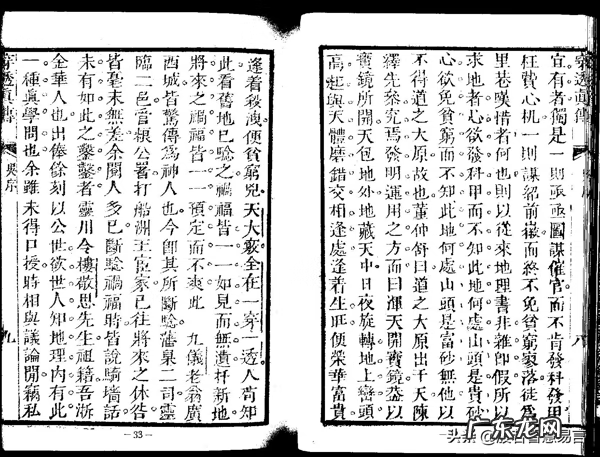 宜有者偈是一則亟亟圖謀催官而不肯發科發甲
枉費心机一則謀紹前績而終不免貧窮寥落徒爲
里巷嘆惜者何也則以從來地理書非雜卽假所以
求地者心欲發科甲而不知此地何處山頭是貴砂
心欲免貧窮而不知此地何處山頭是富砂無他以
不得道之大原故也董仲舒曰道之大原出于天陳
繹先泰究焉發明運用之方而曰渾天開寶鏡盛以
寶鏡所開天包地外地藏天中日夜旋轉地上巒頭
高起與天體磨錯交相逢處逢着生旺便榮華富貴
逢着殺洩便貧窮兇夭大竅全在一穿一透人肯知
此看舊地已驗之禍福皆一一如見而無遺杆新地
將來之禍福皆一一預定而不爽此 九儀老翁廣
西城皆驚傳爲神人也今卽其所斷驗藩臬二司靈
臨二邑當公署打船洲王宦家已往將來之休咎
皆毫末無差余閱人多已斷驗禍福時皆說騎墻話
未有如此之鑿鑿者靈川令樓敬思先生祖籍吾浙
金華人也出俸餘刻以公世欲世人知地理內有此
一種眞學問也余雖未得口授時相與議論開藉私
穿透眞傳 吳序 九
—33—
头条 @殷古智慧易言
广东龙网